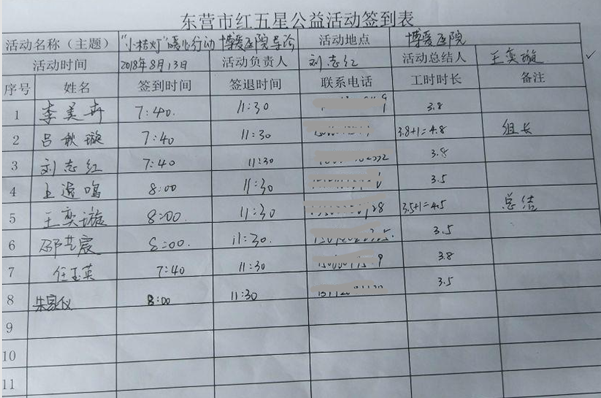 东营市红五星公益活动签到表
活动名称（主题） "小桔灯"暖心行动 博爱医院导诊 活动地点 博爱医院
活动时间 2018年8月13日 活动负责人 刘志红 活动总结人 王奕璇
序号 姓名 签到时间 签退时间 联系电话 工时时长 备注
1 李美卉 7:40. 11:30 3.8
2 吕 璇 7:40 11:30 3.8+1=4.8 组长
3 刘志红 7:40 11:30 3.8
4 8:00 11:30 3.5
5 王奕璇 8:00. 11:30 3.5+1=4.5 总结
6 邵艺宸 8:00. 11:30. 3.5
7 任玉英 7:40 11:30 3.8
8 朱家仪 8:00 11:30 3.5
9
10
11